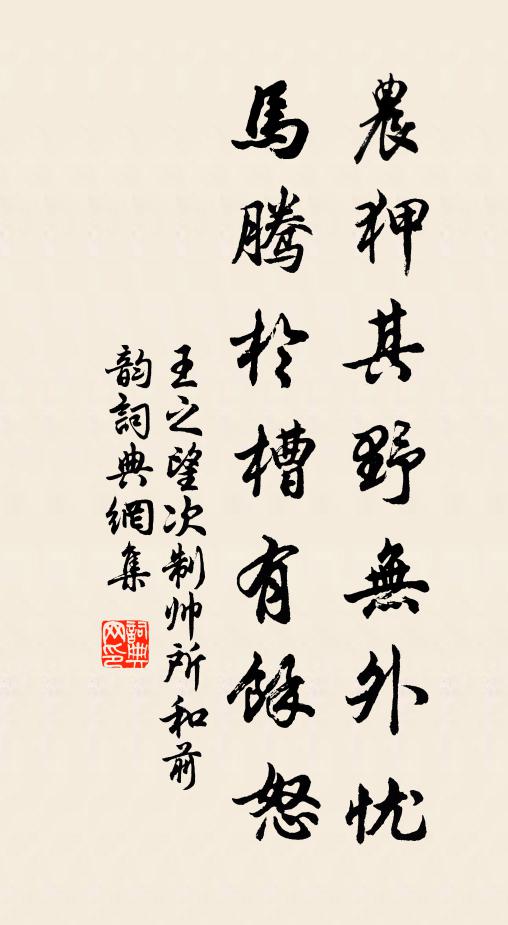 農狎其野無外忧
馬腾於槽有餘怒
王之望次制帅所和前
韵詞典網集
詞典
网印